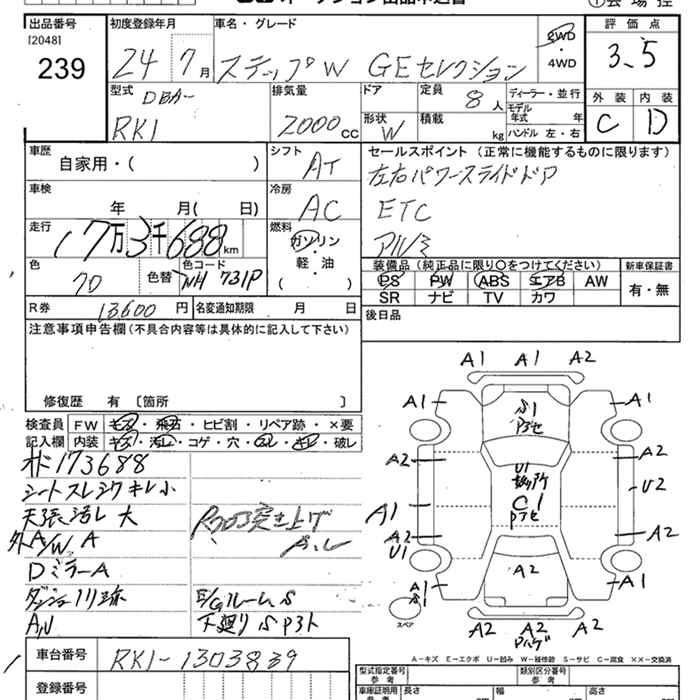 出品番号
[2048]
239
初度登録年月
24 7月
車名・グレード
ステップW GEセレクション
2WD
・
4WD
評価点
3.5
外装 内装
C D
型式
DBA-
RK1
排気量
2000cc
ドア
形状
W
定員
8人
積載
kg
ディーラー・並行
モデル
年式 年
ハンドル 左・右
車歴
自家用・( )
シフト
AT
セールスポイント(正常に機能するものに限ります)
左右パワースライドドア
ETC
アルミ
車検
年 月( 日)
冷房
AC
走行
17万3千688km
燃料
ガソリン
軽・油
( )
色
色替
色コード
NH 731P
装備品(純正品に限り○をつけてください)
PS PW ABS エアB AW
SR ナビ TV カワ
新車保証書
有・無
R券
13,600円
名変通知期限 月 日
後日品
注意事項申告欄(不具合内容等は具体的に記入して下さい)
修復歴 有 〔箇所 〕
検査員
記入欄
FW キズ・飛石・ヒビ割・リペア跡・×要
内装 キズ・汚レ・コゲ・穴・スレ・キレ・破レ
173688
シートスレシワキレ小
天張汚レ 大
外A/W A
DミラーA
突き上げ
E/Gルーム S
下廻りS P3ト
A1 A1 A2
A1 A1
S1
A2 A2
U1
U2
C1
A1
A2 A2
U1
A2
A1 A1
S1
スペア
A2 A2 A2
Pハゲ
A－キズ E－エクボ U－凹み W－補修跡 S－サビ C－腐食 ××－交換済
車台番号
RK1-1303839
登録番号
型式指定番号
参考
類別区分番号
参考
車庫証明用
参考
長さ 幅 高さ